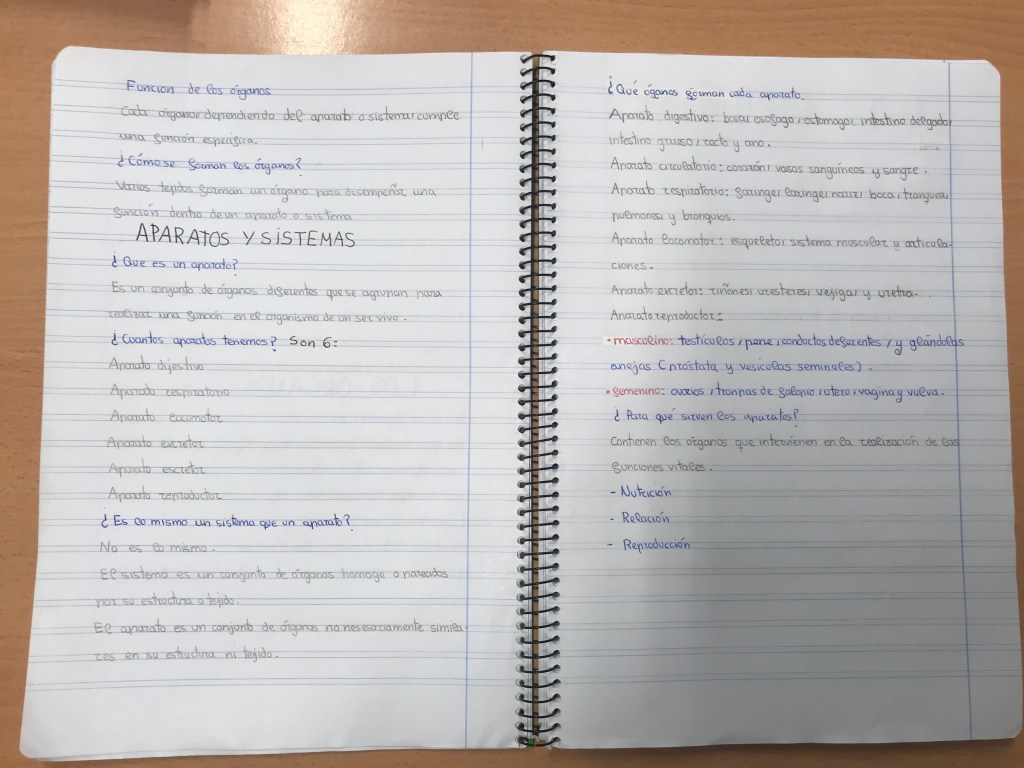 Funcion de los órganos
Cada órgano, dependiendo del aparato o sistema, cumple
una función específica.
¿Cómo se forman los órganos?
Varios tejidos forman un órgano para desempeñar una
función dentro de un aparato o sistema
APARATOS Y SISTEMAS
¿Que es un aparato?
Es un conjunto de órganos diferentes que se agrupan para
realizar una función en el organismo de un ser vivo.
¿Cuantos aparatos tenemos? Son 6:
Aparato dijestivo
Aparado respiratorio
Aparato locomotor
Aparato excretor
Aparato escretor
Aparato reproductor
¿Es lo mismo un sistema que un aparato?
No es lo mismo.
El sistema es un conjunto de órganos homoge o parecidos
por su estructura o tejido.
El aparato es un conjunto de órganos no nesesariamente simila-
res en su estructura ni tejido.
¿Qué óganos forman cada aparato.
Aparato digestivo: boca, esofago, estomago, intestino delgado,
intestino grueso, recto y ano.
Aparato circulatorio: corazón, vasos sanguíneos y sangre.
Aparato respiratorio: faringe, laringe, nariz, boca, traquea,
pulmones, y bronquios.
Aparato locomotor: esqueleto, sistema muscular y articula-
ciones.
Aparato excretor: riñones, uresteres, vejiga, y uretra.
Aparato reproductor:
• masculino: testículos, pene, conductos deferentes, y glándulas
anejas (próstata y vesículas seminales).
• femenino: ovarios, trompas de falopio, utero, vagina y vulva.
¿Para qué sirven los aparatos?
Contienen los órganos que intervienen en la realización de las
funciones vitales.
- Nutrición
- Relación
- Reproducción